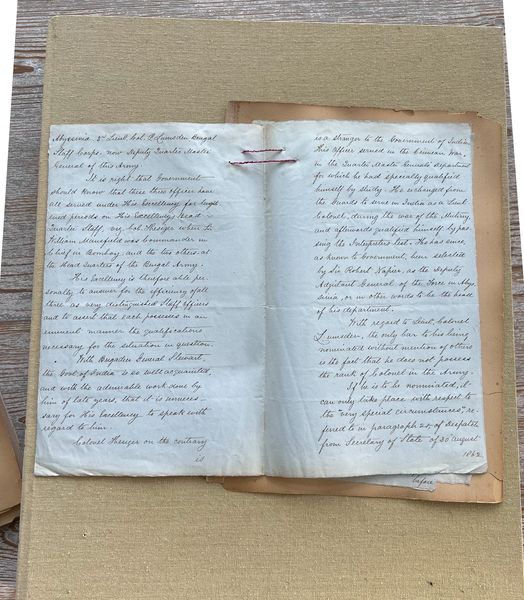 Abyssinia 3rd Lieut. Col. P. Lumsden Bengal
Staff Corps, now Deputy Quarter Master
General of this Army.
It is right that Government
should know that these three officers have
all served under His Excellency for length
ened periods on His Excellency's head
Quarter Staff, viz. Col. Thesiger when Sir
William Mansfield was Commander in
Chief in Bombay, and the two others at
the Head Quarters of the Bengal Army.
His Excellency is therefore able per
sonally to answer for the efficiency of all
three as very distinguished Staff officers
and to assert that each possesses in an
eminent manner the qualifications
necessary for the situation in question.
With Brigadier General Stewart,
the Govt. of India is so well acquainted,
and with the admirable work done by
him of late years, that it is unneces-
sary for His Excellency to speak with
regard to him.
Colonel Thesiger on the contrary
is
is a stranger to the Government of India
This officer served in the Crimean War,
in the Quarter Master General's department
for which he had specially qualified
himself by study. He exchanged from
the Guards to serve in India as a Lieut.
Colonel, during the war of the Mutiny,
and afterwards qualified himself by pas
sing the Interpreters test. He has since,
as known to Government, been selected
by Sir Robert Napier, as the Deputy
Adjutant General of the Force in Abys
sinia, or in other words to be the head
of his department.
With regard to Lieut. Colonel
Lumsden, the only bar to his being
nominated without mention of others
is the fact that he does not possess
the rank of Colonel in the Army.
If he is to be nominated, it
can only take place with respect to
the "very special circumstances", re
ferred to in paragraph 24, of despatch
from Secretary of State of 30 August
1862
before